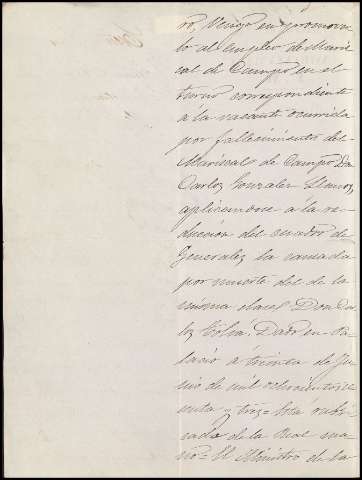 ro, Vengo en promover-
lo al empleo de Maris-
cal de Campo en el
turno correspondiente
á la vacante ocurrida
por fallecimiento del
Mariscal de Campo Dn
Carlos Gonzalez Llanos,
aplicandose á la re-
duccion del cuadro de
Generales la causada
por muerte del de la
misma clase Don Car-
los Dado en Pa-
lacio á treinta de Ju-
nio de mil ochocientos se-
senta y tres = Está rubri-
cado de la Real ma-
no = El Ministro de la